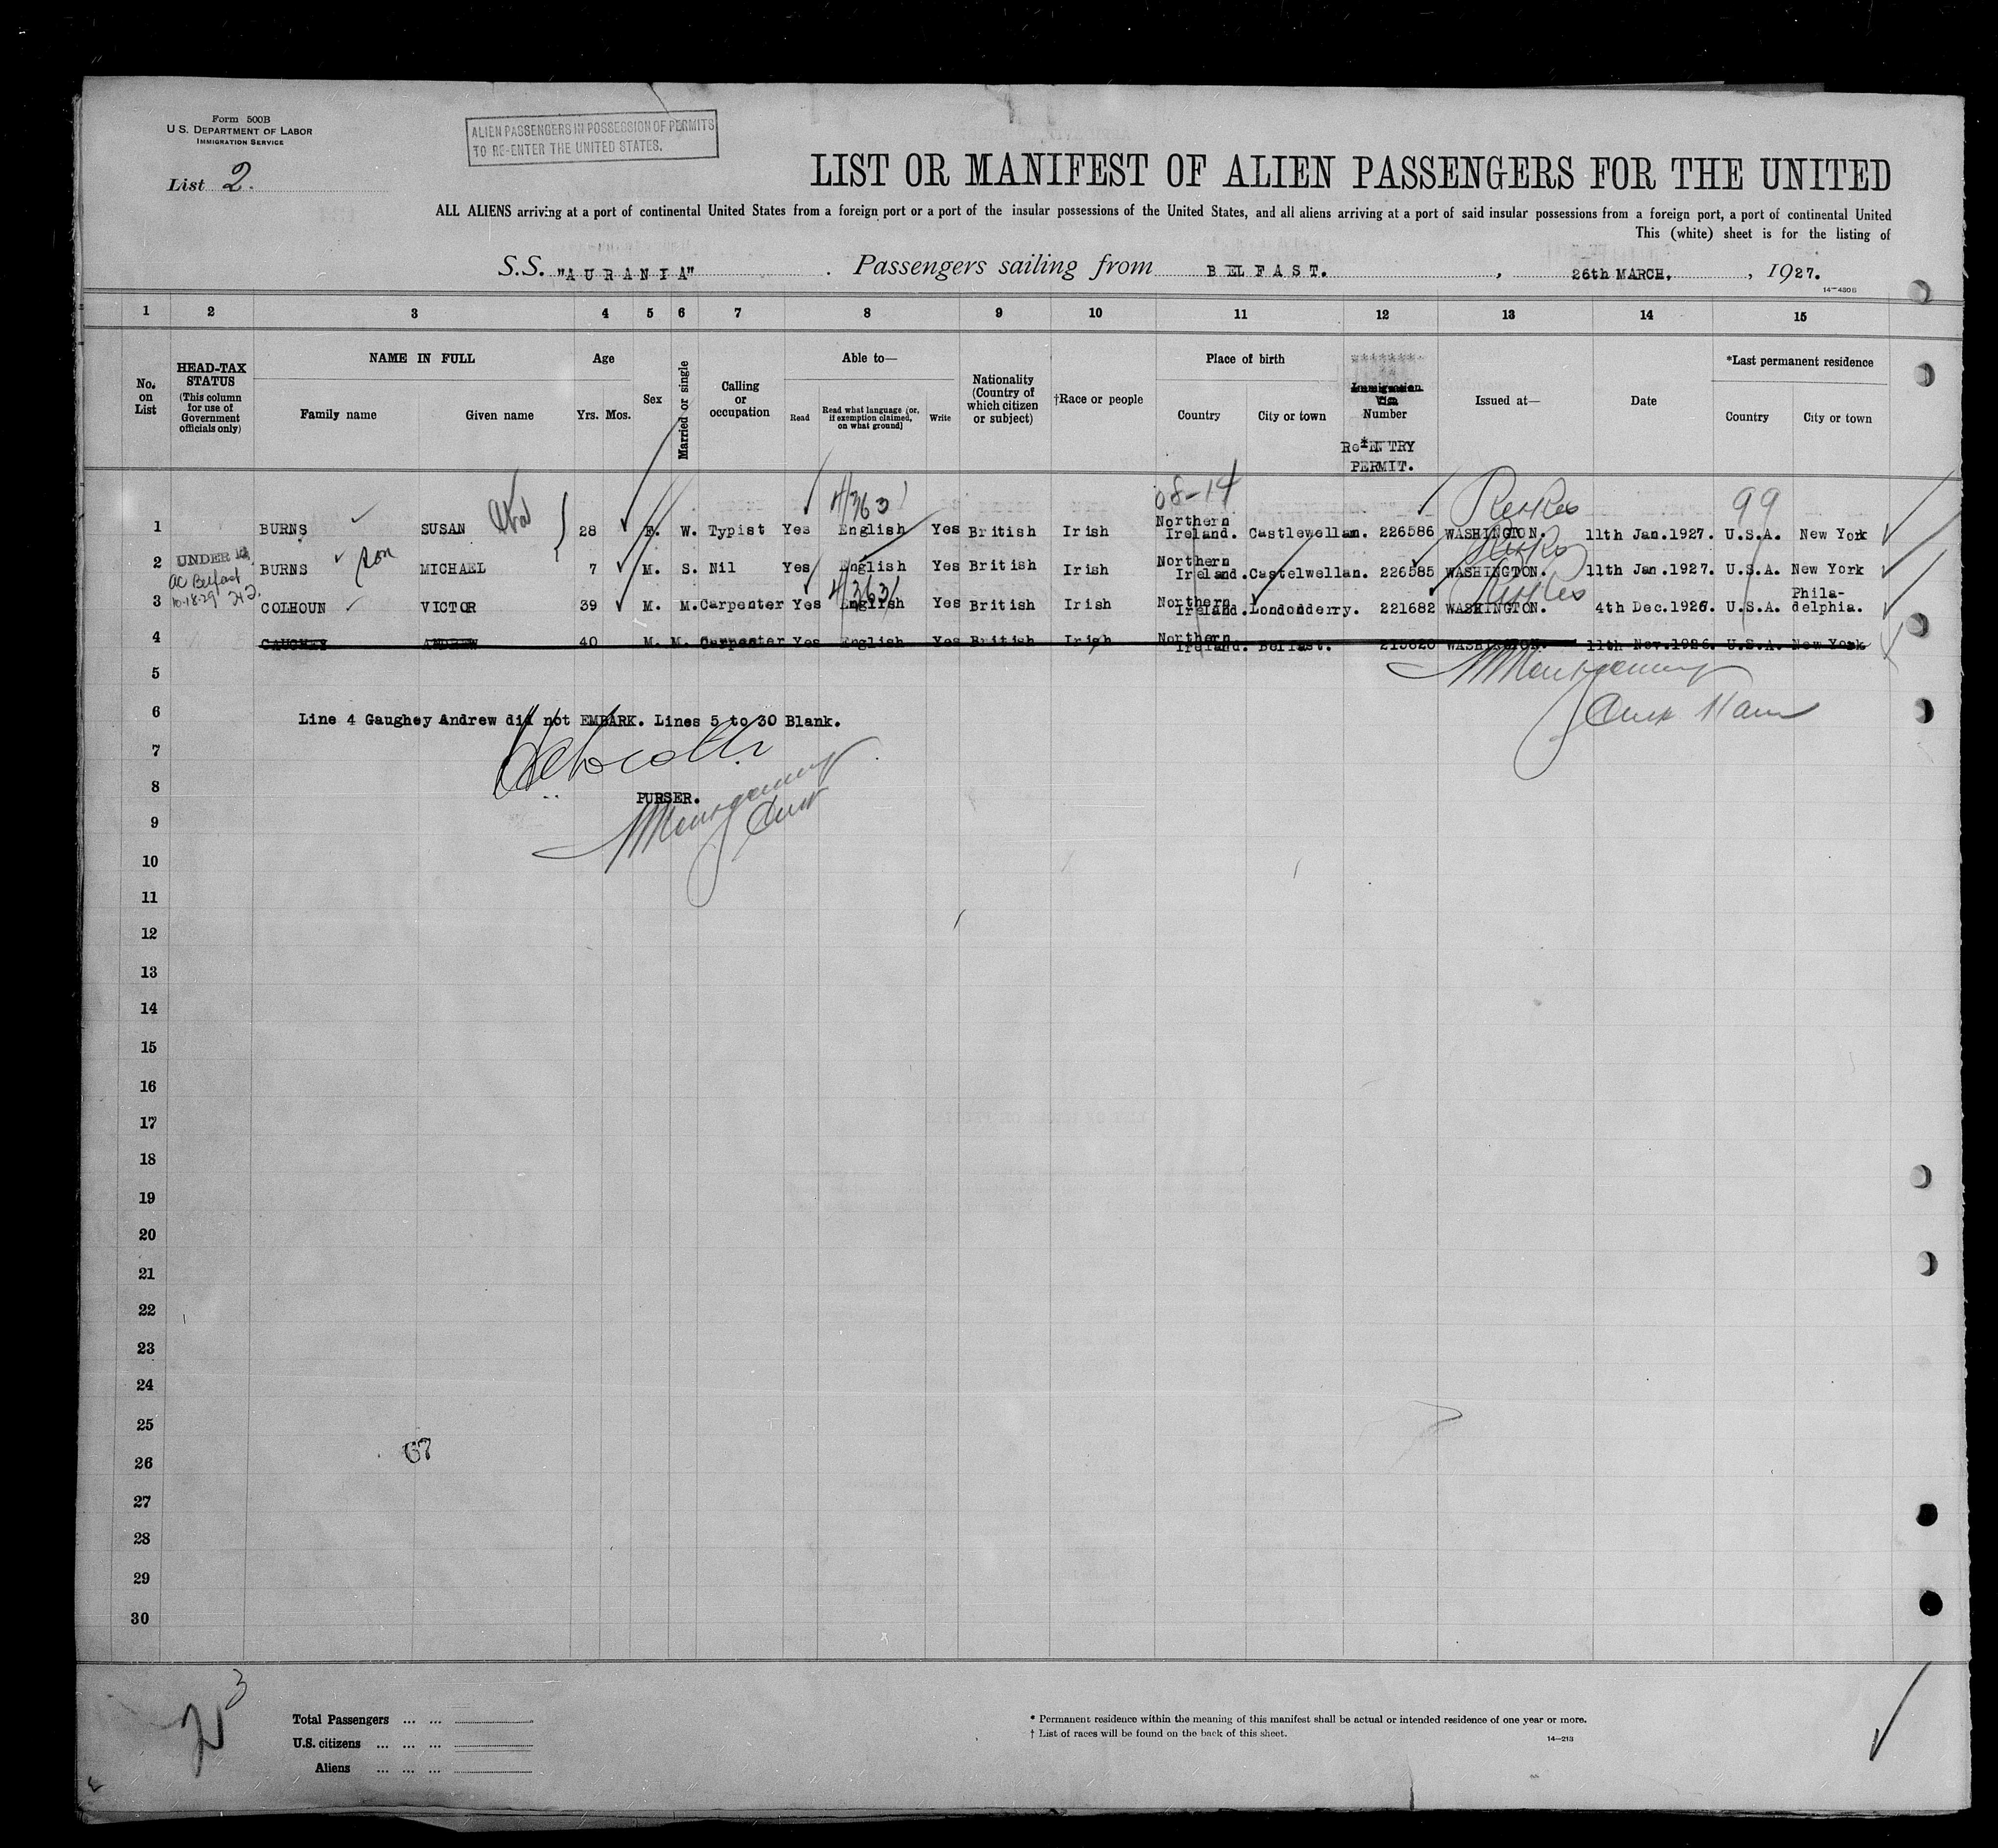 Form 500B
U.S. DEPARTMENT OF LABOR
IMMIGRATION SERVICE
ALIEN PASSENGERS IN POSSESSION OF PERMITS
TO RE-ENTER THE UNITED STATES.
List 2.
LIST OR MANIFEST OF ALIEN PASSENGERS FOR THE UNITED
ALL ALIENS arriving at a port of continental United States from a foreign port or a port of the insular possessions of the United States, and all aliens arriving at a port of said insular possessions from a foreign port, a port of continental United
This (white) sheet is for the listing of
S.S. "AURANIA" . Passengers sailing from BELFAST. , 26th MARCH. , 1927.
14—4806
1 2 3 4 5 6 7 8 9 10 11 12 13 14 15
No. on List
HEAD-TAX STATUS (This column for use of Government officials only)
NAME IN FULL
Family name Given name
Age
Yrs. Mos.
Sex
Married or single
Calling or occupation
Able to—
Read Read what language (or, if exemption claimed, on what ground) Write
Nationality (Country of which citizen or subject)
†Race or people
Place of birth
Country City or town
Immigration Visa Number
Re*ENTRY PERMIT.
Issued at—
Date
*Last permanent residence
Country City or town
4/363 08-14 99
1 BURNS SUSAN 28 F. W. Typist Yes English Yes British Irish Northern Ireland. Castlewellan. 226586 WASHINGTON. 11th Jan.1927. U.S.A. New York
2 UNDER BURNS son MICHAEL 7 M. S. Nil Yes English Yes British Irish Northern Ireland. Castelwellan. 226585 WASHINGTON. 11th Jan.1927. U.S.A. New York
AC Belfast
10-18-29
4/363
3 COLHOUN VICTOR 39 M. M. Carpenter Yes English Yes British Irish Northern Ireland. Londonderry. 221682 WASHINGTON. 4th Dec.1926. U.S.A. Phila-delphia.
4 GAUGHEY ANDREW 40 M. M. Carpenter Yes English Yes British Irish Northern Ireland. Belfast. 215620 WASHINGTON. 11th Nov.1926. U.S.A. New York
5
6 Line 4 Gaughey Andrew did not EMBARK. Lines 5 to 30 Blank.
7
8 PURSER.
9
10
11
12
13
14
15
16
17
18
19
20
21
22
23
24
25
26 67
27
28
29
30
3
Total Passengers ... ...
U.S. citizens ... ... ...
Aliens ... ... ...
* Permanent residence within the meaning of this manifest shall be actual or intended residence of one year or more.
† List of races will be found on the back of this sheet.
14—213